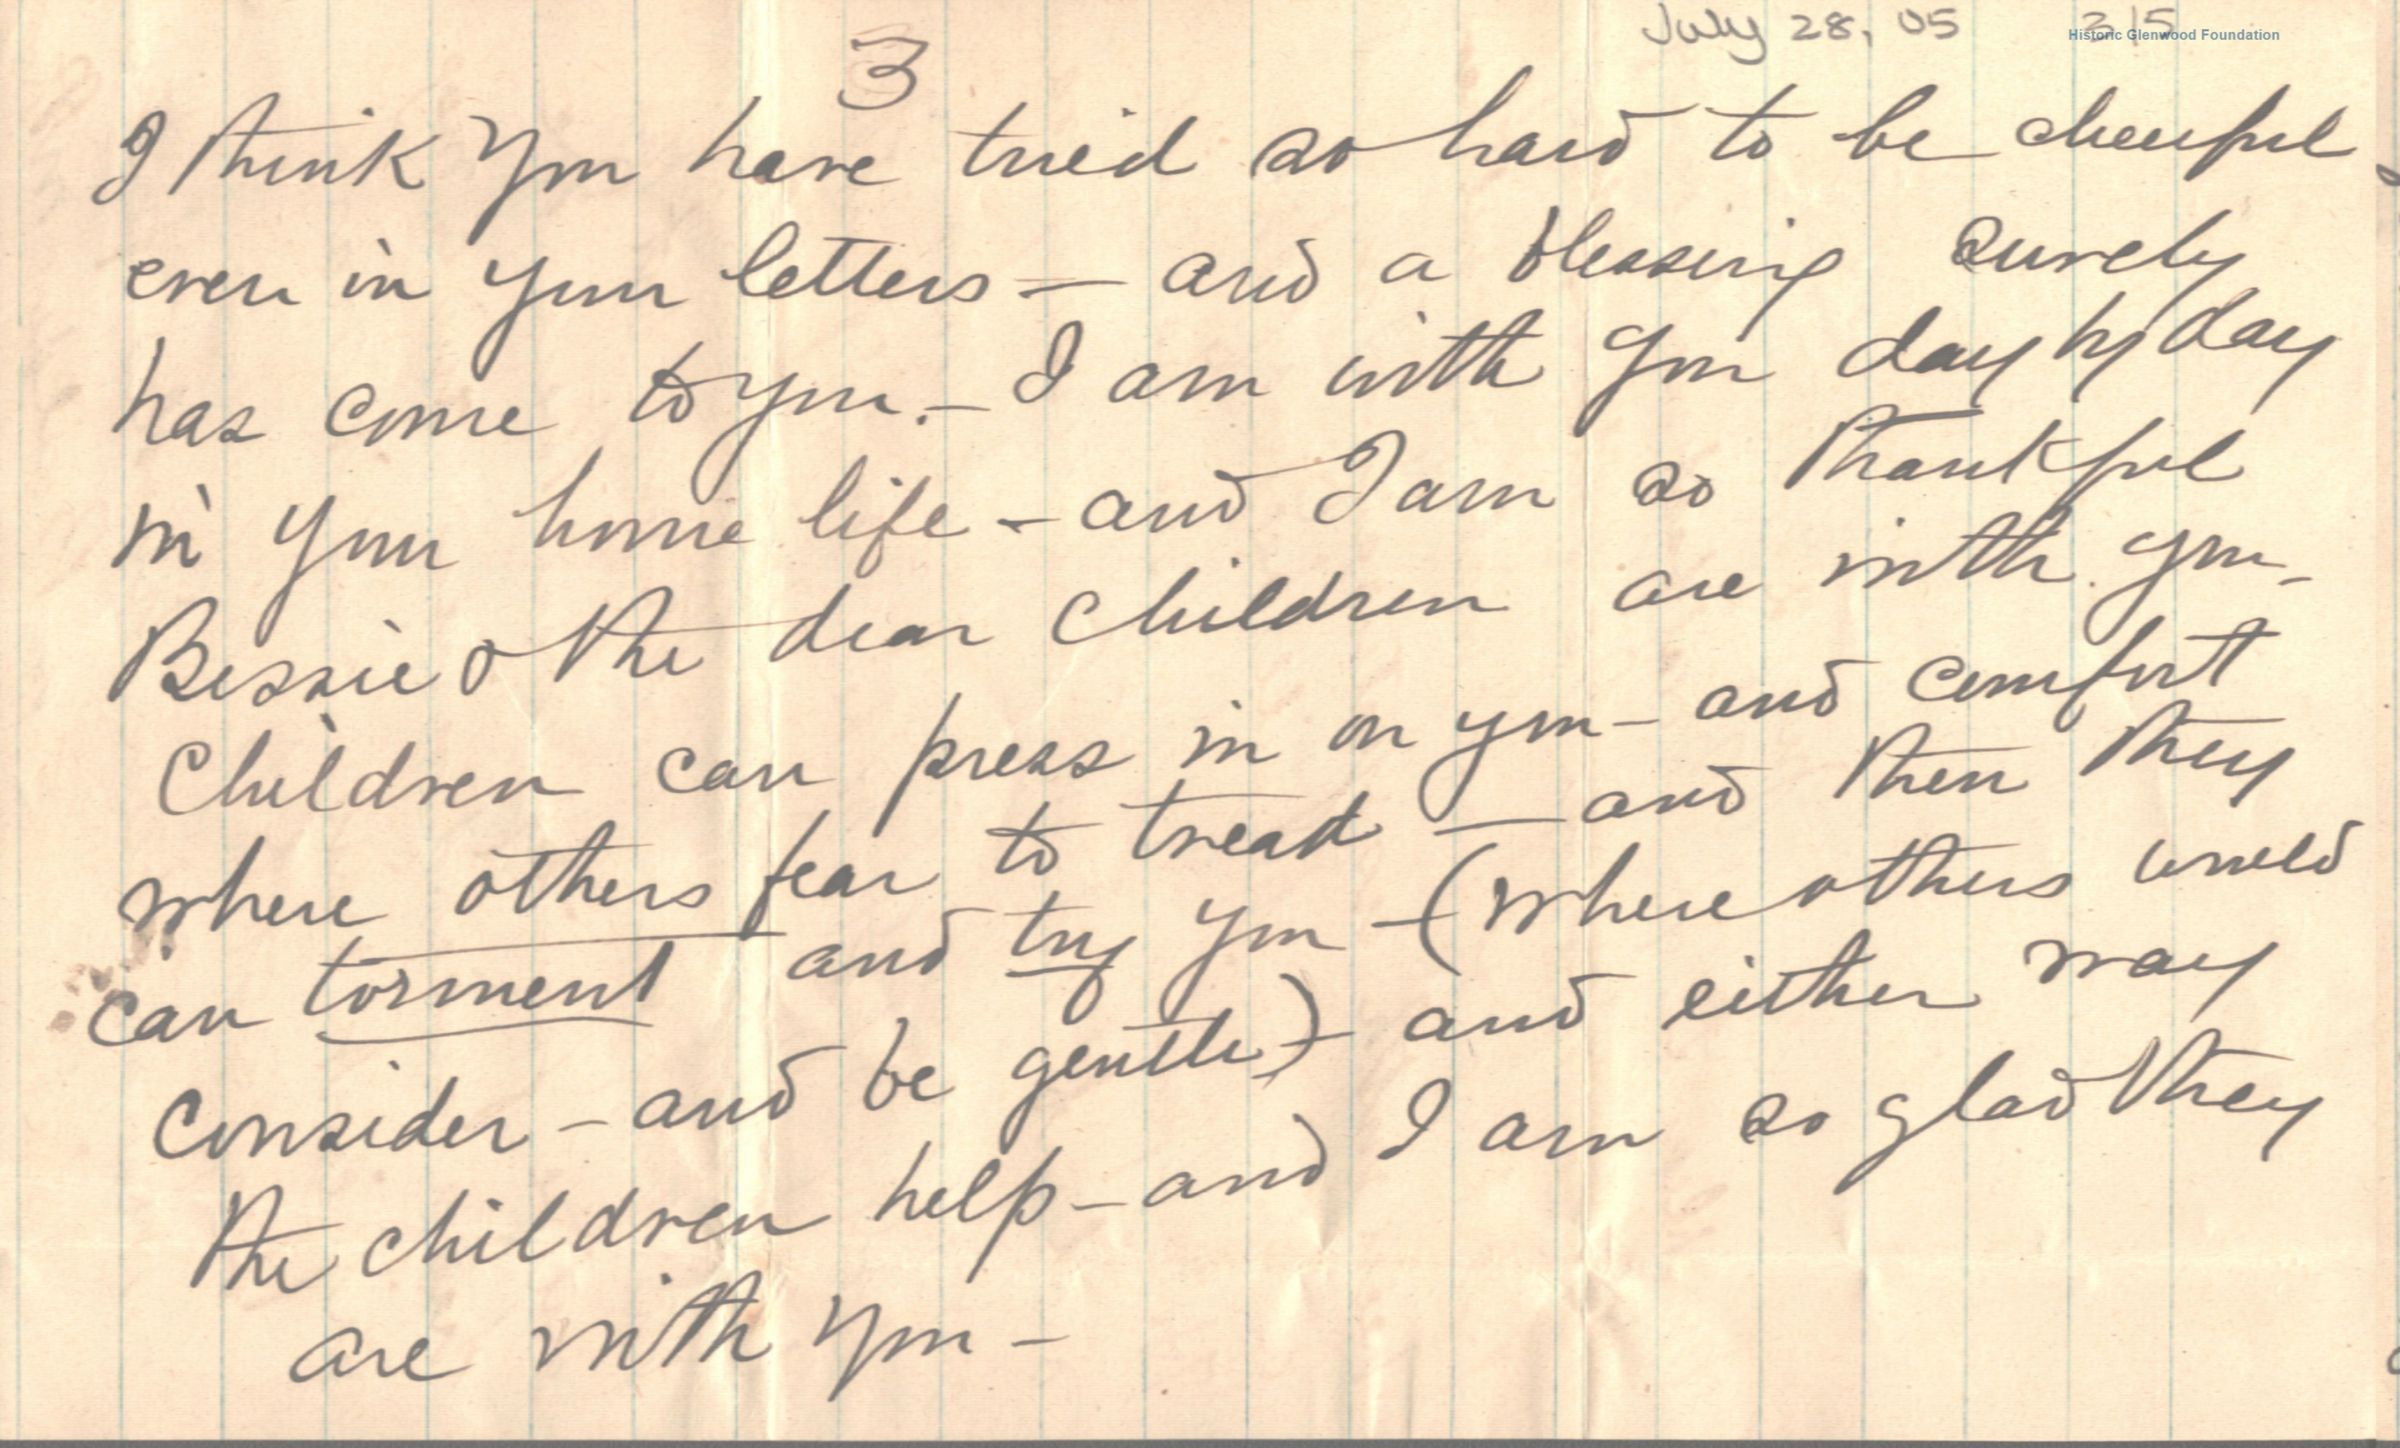 July 28, 05 3/5
Historic Glenwood Foundation
3
I think you have tried so hard to be cheerful
even in your letters — and a blessing surely
has come to you. — I am with you day by day
in your home life — and I am so thankful
Bessie & the dear children are with you —
Children can press in on you — and comfort
where others fear to tread — and then they
can torment and try you — (where others would
consider — and be gentle) — and either way
the children help — and I am so glad they
are with you —